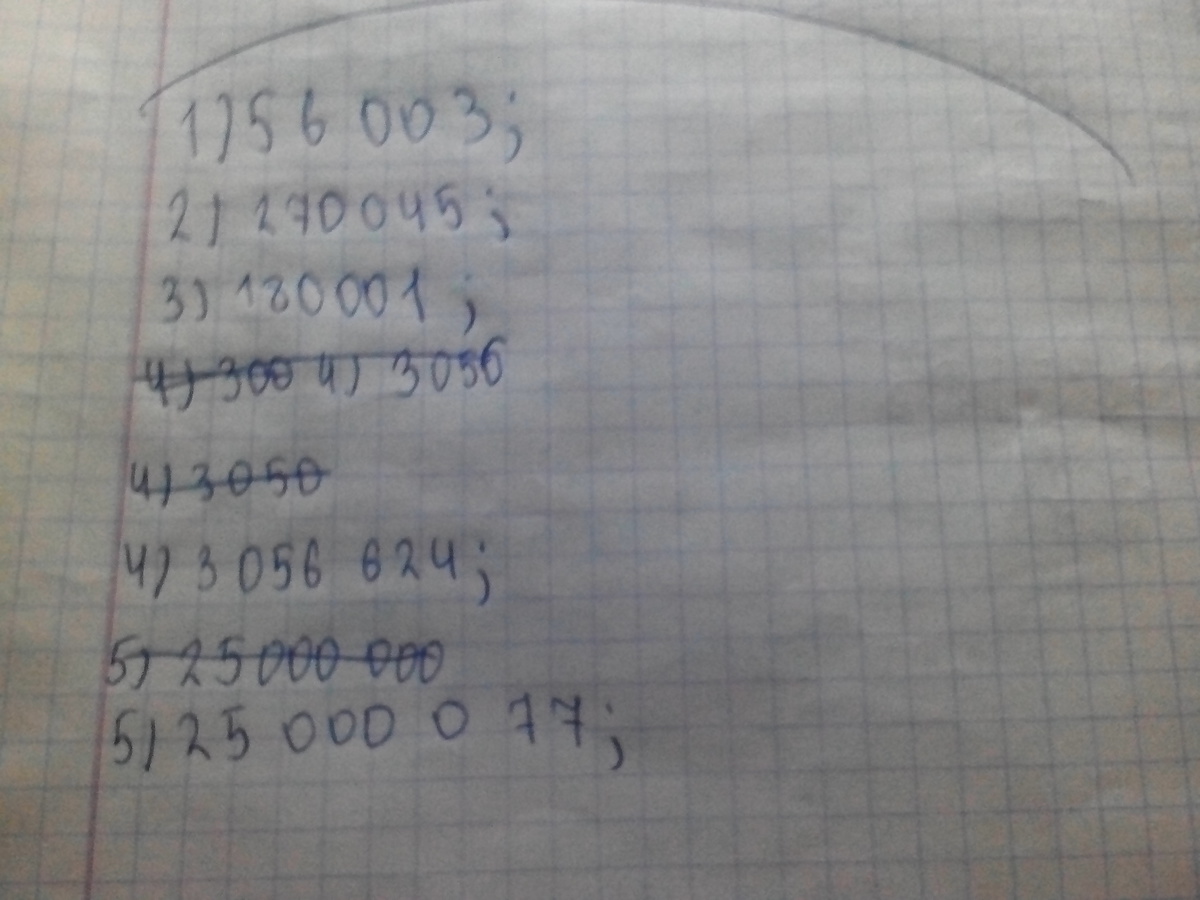 1) 56 003;
2) 270045;
3) 180001;
4) 300 4) 3056
4) 3050
4) 3 056 624;
5) 25000 000
5) 25 000 0 77;